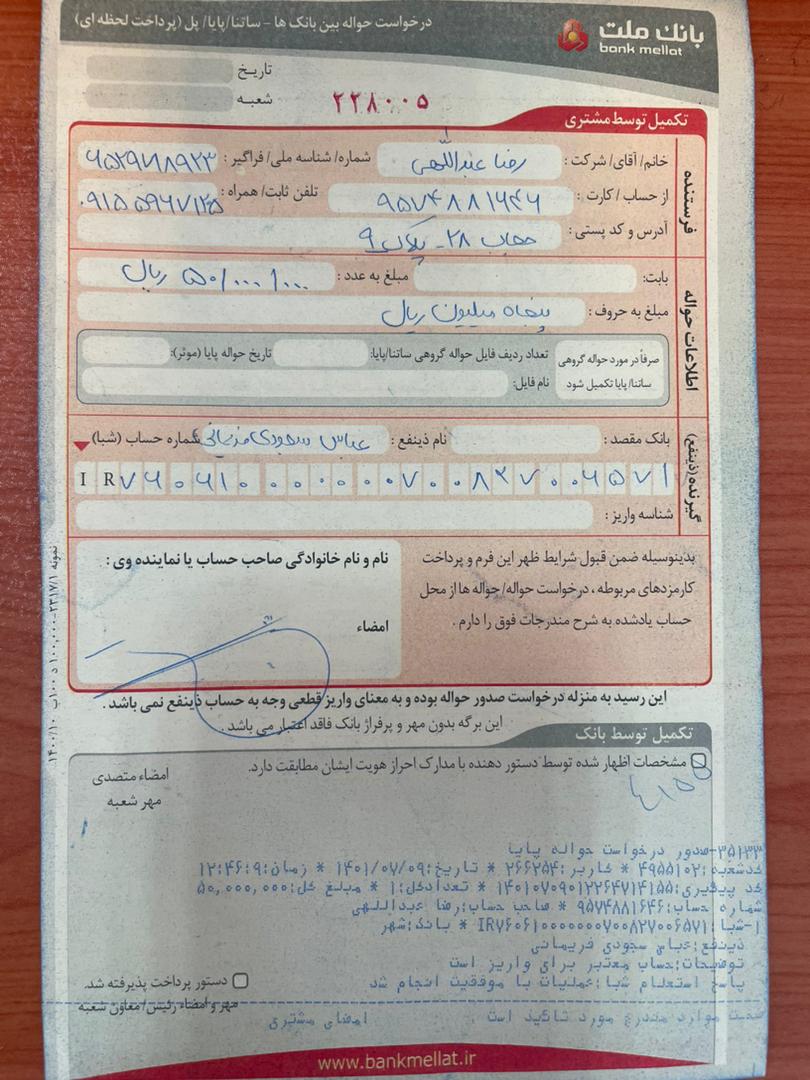 بانک ملت
bank mellat
درخواست حواله بین بانک ها - ساتنا/پایا/ پل (پرداخت لحظه ای)
تاریخ
شعبه
۲۲۸۰۰۵
تکمیل توسط مشتری
فرستنده
خانم/آقای/شرکت: رضا عبداللهی شماره/ شناسه ملی/ فراگیر:
از حساب/کارت: ۹۵۷۴۸۸۱۶۴۶ تلفن ثابت/ همراه:
آدرس و کد پستی: ۲۸ - پلاک ۹
اطلاعات حواله
بابت: مبلغ به عدد: ۵۰/۰۰۰/۰۰۰ ریال
مبلغ به حروف: پنجاه میلیون ریال
صرفاً در مورد حواله گروهی تعداد ردیف فایل حواله گروهی ساتنا/پایا: تاریخ حواله پایا (موثر):
ساتنا/ پایا تکمیل شود نام فایل:
گیرنده(ذینفع)
بانک مقصد: نام ذینفع: عباس شماره حساب (شبا)
IR۷۶۰۶۱۰۰۰۰۰۰۰۷۰۰۸۲۷۰۰۶۵۷۱
شناسه واریز:
بدینوسیله ضمن قبول شرایط ظهر این فرم و پرداخت
کارمزدهای مربوطه، درخواست حواله/حواله ها از محل
حساب یادشده به شرح مندرجات فوق را دارم.
نام و نام خانوادگی صاحب حساب یا نماینده وی:
امضاء
این رسید به منزله درخواست صدور حواله بوده و به معنای واریز قطعی وجه به حساب ذینفع نمی باشد.
این برگه بدون مهر و پرفراژ بانک فاقد اعتبار می باشد.
تکمیل توسط بانک
مشخصات اظهار شده توسط دستور دهنده با مدارک احراز هویت ایشان مطابقت دارد.
امضاء متصدی
مهر شعبه
۳۵۱۳۳-صدور درخواست حواله پایا
کدشعبه:۴۹۵۵۱۰۲ * کاربر:۲۶۶۲۵۴ * تاریخ:۱۴۰۱/۰۷/۰۹ * زمان:۱۲:۴۶:۹
کد پیگیری:۱۴۰۱۰۷۰۹۰۱۲۲۶۴۷۱۴۱۵۵ * تعدادکل:۱ * مبلغ کل:۵۰,۰۰۰,۰۰۰
شماره حساب:۹۵۷۴۸۸۱۶۴۶ * صاحب حساب:رضا عبداللهی
۱-شبا:IR۷۶۰۶۱۰۰۰۰۰۰۰۷۰۰۸۲۷۰۰۶۵۷۱ * بانک:شهر
ذینفع:عباس سجودی فریمانی
توضیحات:حساب معتبر برای واریز است
پاسخ استعلام شبا:عملیات با موفقیت انجام شد
دستور پرداخت پذیرفته شد.
مهر و امضاء رئیس/ معاون شعبه
صحت موارد مندرج مورد تائید است امضای مشتری
www.bankmellat.ir